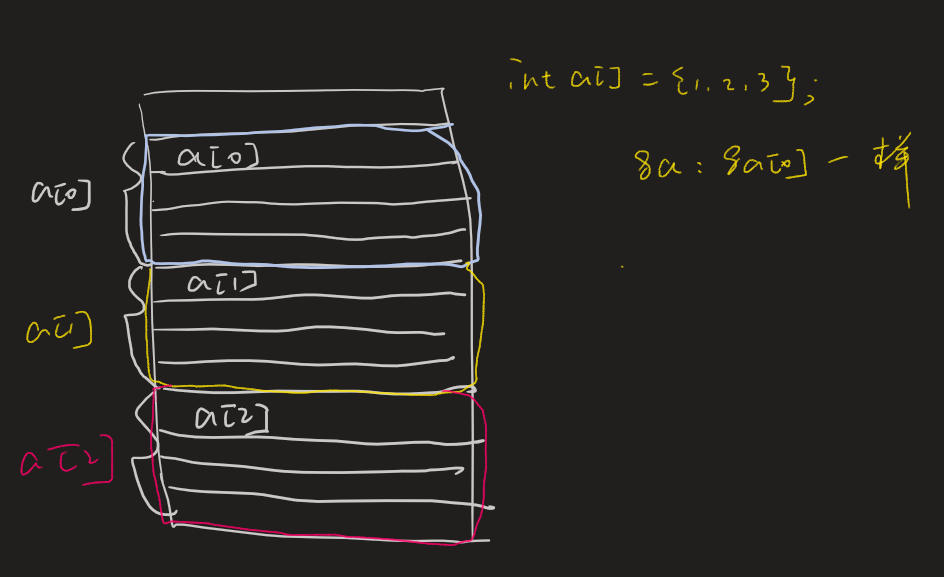 int a[] = {1, 2, 3};
&a : &a[0] 一样
a[0]
a[0]
a[1]
a[1]
a[2]
a[2]